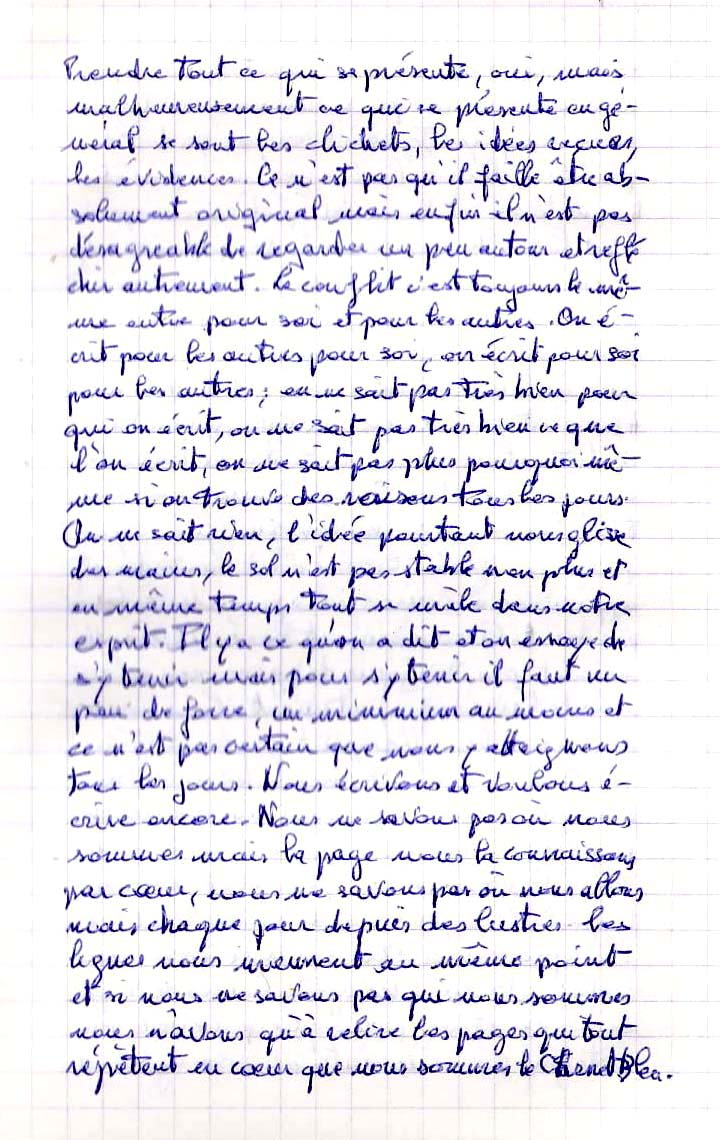 Prendre tout ce qui se présente, oui, mais
malheureusement ce qui se présente en gé-
néral se sont les clichets, les idées reçues,
les évidences. Ce n'est pas qu'il faille être ab-
solument original mais enfin il n'est pas
désagréable de regarder un peu autour et réflé
chir autrement. Le conflit c'est toujours le mê-
me entre pour soi et pour les autres. On é-
crit pour les autres pour soi, on écrit pour soi
pour les autres ; on ne sait pas très bien pour
qui on écrit, on ne sait pas très bien ce que
l'on écrit, on ne sait pas plus pourquoi mê-
me si on trouve des raisons tous les jours.
On ne sait rien, l'idée pourtant nous glisse
des mains, le sol n'est pas stable non plus et
en même temps tout se mêle dans notre
esprit. Il y a ce qu'on a dit et on essaye de
s'y tenir mais pour s'y tenir il faut un
peu de force, un minimum au moins et
ce n'est pas certain que nous y atteignons
tous les jours. Nous écrivons et voulons é-
crire encore. Nous ne savons pas où nous
sommes mais la page nous la connaissons
par cœur, nous ne savons pas où nous allons
mais chaque jour depuis des lustres les
lignes nous mènent au même point
et si nous ne savons pas qui nous sommes
nous n'avons qu'à relire les pages qui tout
répètent en cœur que nous sommes le Carnet Bleu.